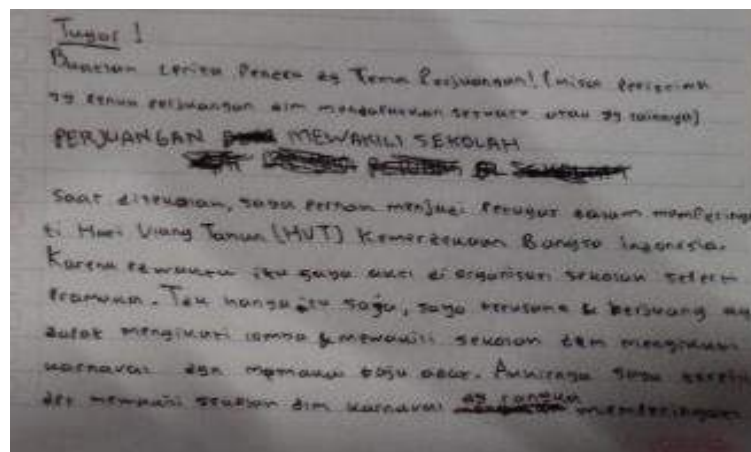 Tugas 1
Buatlah cerita Pendek dg Tema Perjuangan! (misal
dg perjuangan dlm mendapatkan sesuatu atau yg lainnya)
PERJUANGAN MEWAKILI SEKOLAH
Saat disekolah, saya pernah menjadi Petugas dalam memPeringa
ti Hari Ulang Tahun (HUT) Kemerdekaan Bangsa Indonesia.
Karena sewaktu itu saya aktif di organisasi sekolah seperti
Pramuka. Tak hanya itu saja, saya berusaha & berjuang ag
dapat mengikuti lomba & mewakili sekolah mengikuti
karnaval dgn memakai baju adat. Akhirnya saya
mewakili sekolah dlm karnaval memperingati